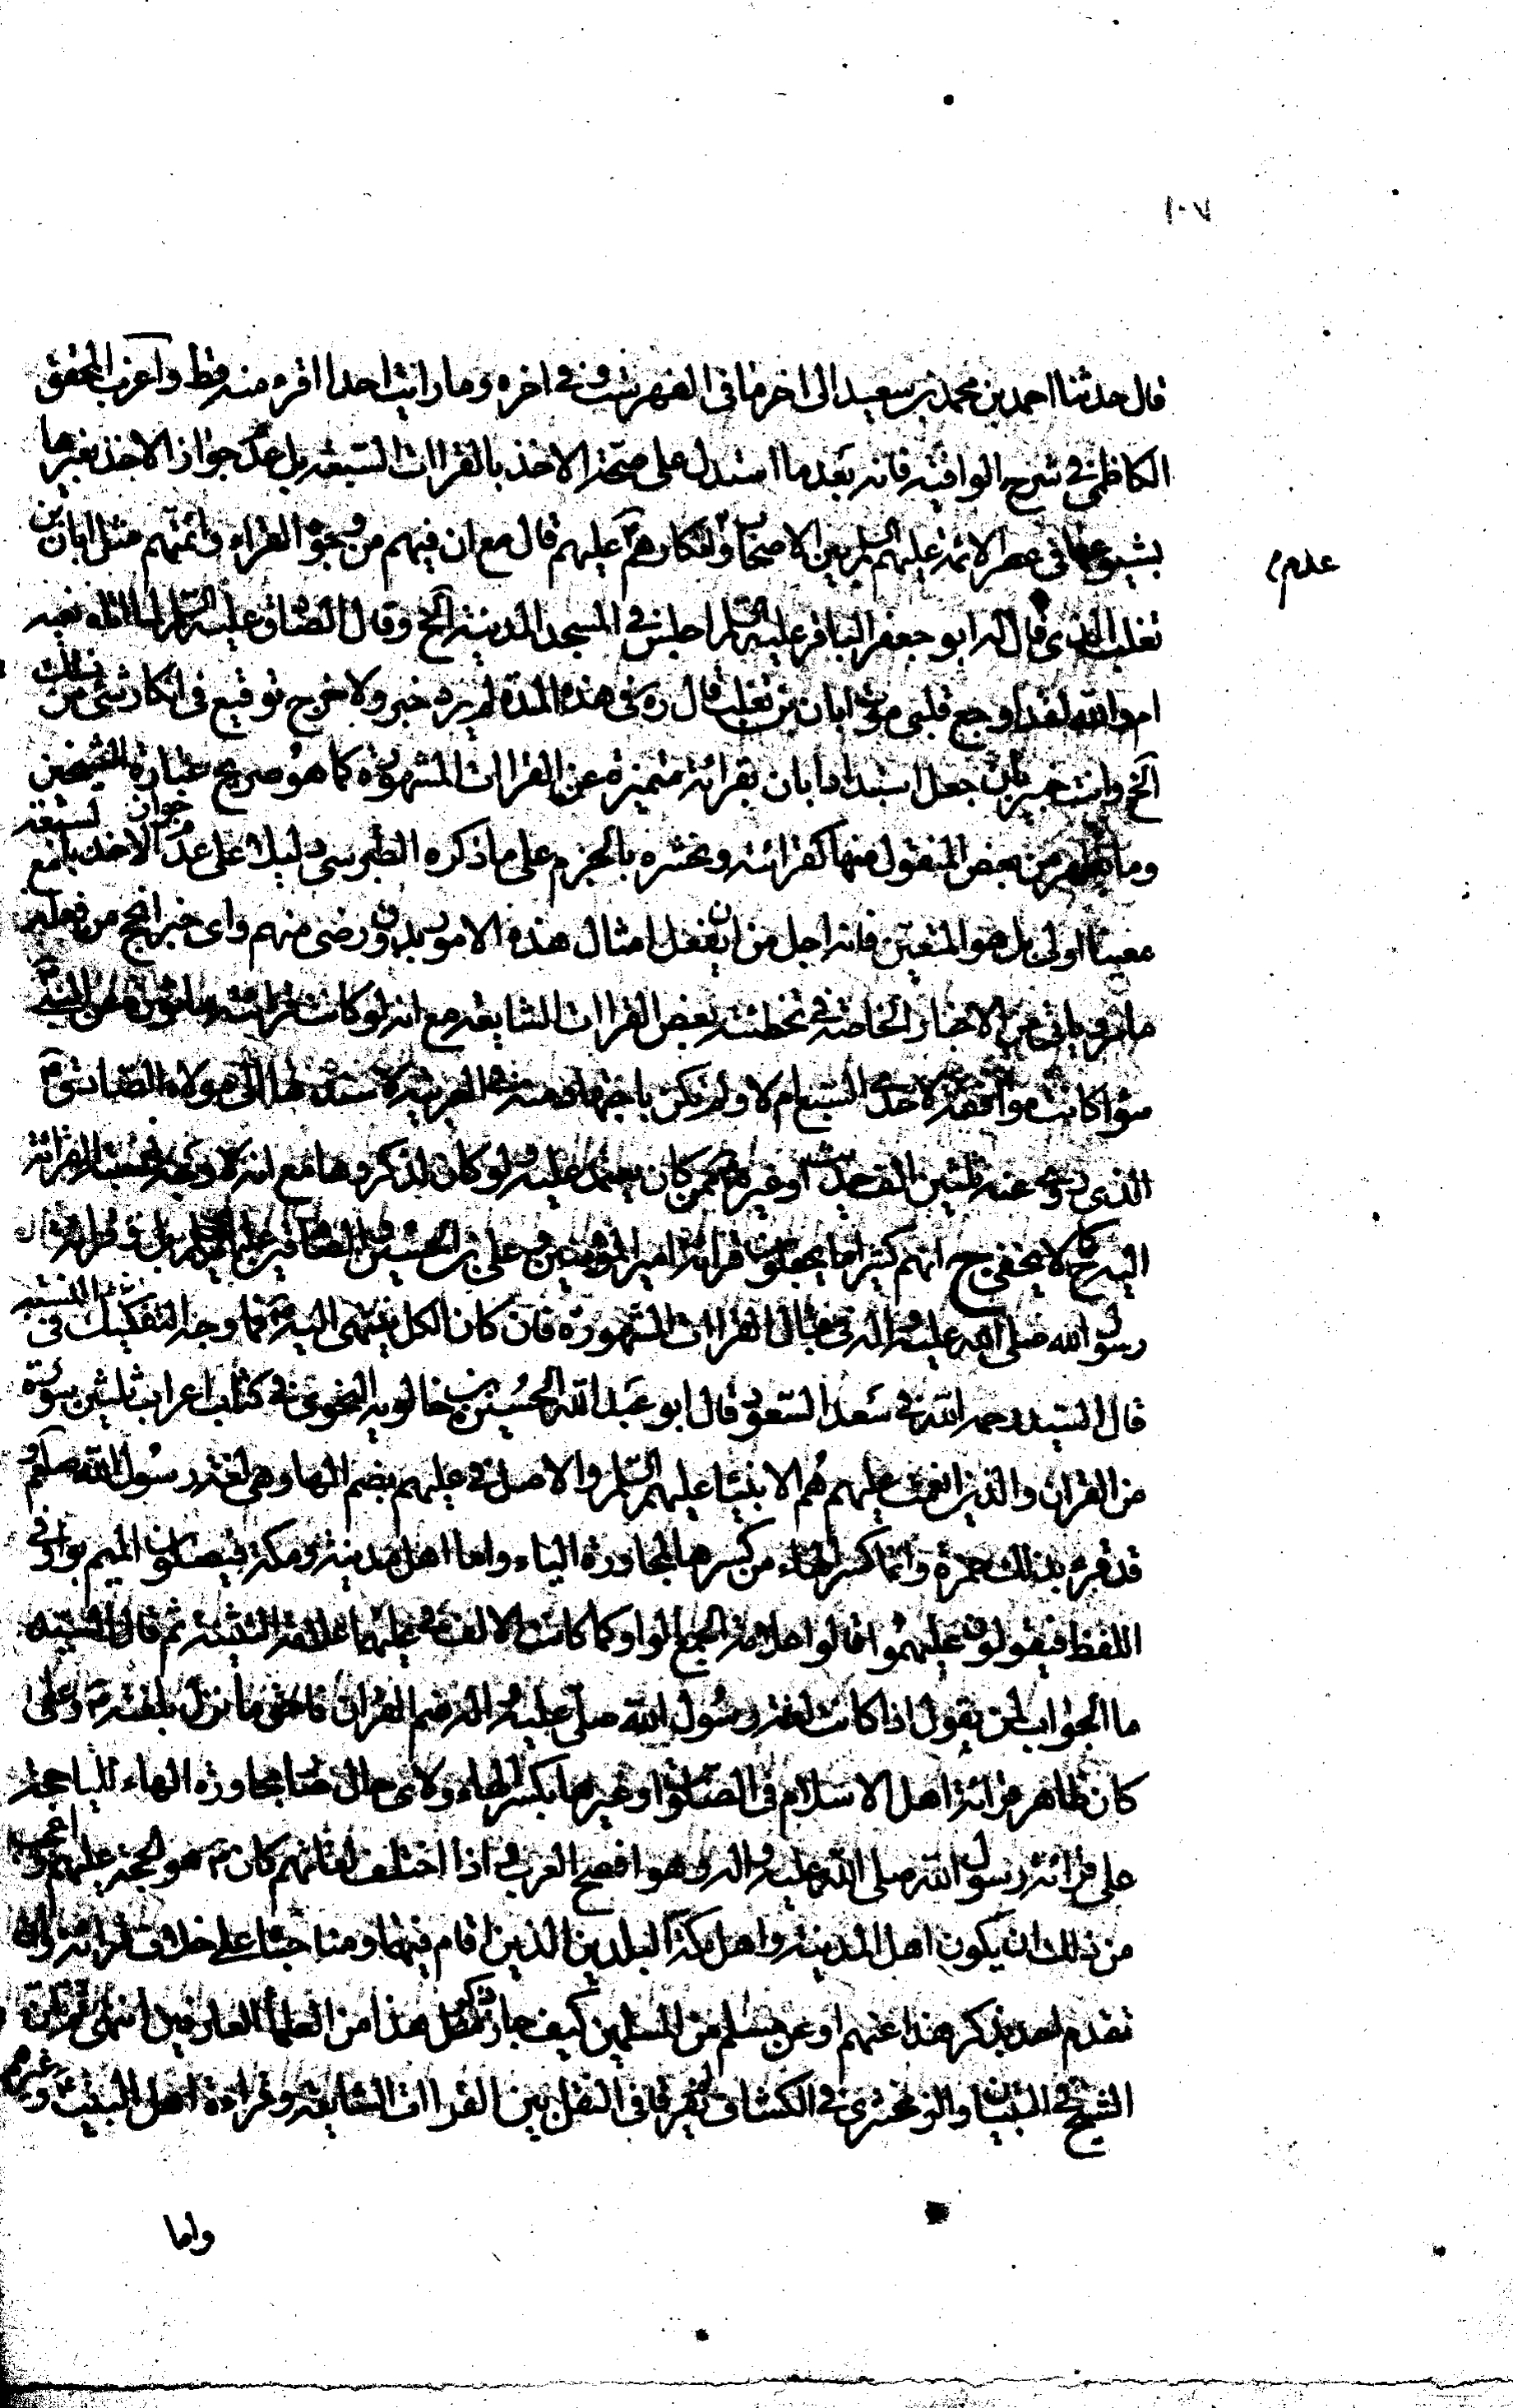 ١٠٧
قال حدثنا احمد بن محمد بن سعيد الى اخر ما فى الفهرست وفى اخره وما رايت احدا اقرء منه قط واغرب المحقق
الكاظمى فى شرح الوافيه فانه بعد ما استدل على صحة الاخذ بالقراات السبعه بل عدم جواز الاخذ بغيرها
بشيوعها فى عصر الائمة عليهم السلم بين الاصحاب وانكارهم عليهم قال مع ان فيهم من وجوه القراء وائمتهم مثل ابان بن
علم
تغلب الذى قال له ابو جعفر الباقر عليه السلم اجلس فى المسجد المدينة الخ وقال الصادق عليه السلم لما اتاه نعيه
ام والله لقد اوجع قلبى موت ابان بن تغلب قال ره فى هذه المدة لم يرد خبر ولا خرج توقيع فى انكار شئ من ذلك
الخ وانت خبير بان جعل استبداد ابان بقرائة متميزة عن القراات المشهورة كما هو صريح عبارة الشيخين
وما يظهر من بعض المنقول منها كقرائته ونحشره بالجزم على ما ذكره الطبرسى دليلا على عدم جواز الاخذ بالسبعة
معينا اولى بل هو المتعين فانه اجل من ان يفعل امثال هذه الامور بدون رضى منهم واى خبر انجح من فعله
ما ياتى من الاخبار الخاصة فى تخطئة بعض القراات الشايعه مع انه لو كانت قرائته ماثورة عن النبى
سواء كانت موافقة لاحدى السبع ام لا ولم تكن باجتهاد منه فى العربية لاسندها الى مولاه الصادق
الذى روى عنه ثلثين الف حديث او غيره ممن كان يعتمد عليه ولو كان لذكروها مع انه لا وجه لنسبة القرائة
اليه ح كما لا يخفى ح انهم كثيرا ما يجعلون قرائة امير المؤمنين وعلى بن الحسين والصادقين عليهم السلم بل وقرائة
رسول الله صلى الله عليه واله فى قبال القراات المشهورة فان كان الكل ينتهى اليه فما وجه التفكيك فى النسبة
قال السيد رحمه الله فى سعد السعود قال ابو عبد الله الحسين بن خالويه النحوى فى كتاب اعراب ثلثين سورة
من القران والذين انعمت عليهم هم الانبياء عليهم السلم والاصل فى عليهم بضم الهاء وهى لغة رسول الله صلعم و
قد قرء بذلك حمزة وانما كسر الهاء من كسرها لمجاورة الياء واما اهل مدينة ومكة فيصلون الميم بواو فى
اللفظ فيقولون عليهموا قالوا علامة الجمع الواو كما كانت الالف فى عليهما علامة التثنية ثم قال السيد
ما الجواب لمن يقول اذا كانت لغة رسول الله صلى عليه واله ضم القران فاحق ما نزل بلغته وعلى
كان ظاهر قرائة اهل الاسلام فى الصلوة او غيرها بكسر الهاء ولاى حال صار مجاورة الهاء للياء حجة
على قرائة رسول الله صلى الله عليه واله وهو افصح العرب واذا اختلف لغاتهم كان هو الحجة عليهم واعجب
من ذلك ان يكون اهل المدينة واهل مكة البلدين الذين اقام فيهما ومات على خلاف قرائته وان
تقدم احد بذكر هذا عنهم او عن مسلم من المسلمين كيف جاز ذكر مثل هذا من العلماء العارفين انتهى
الشيخ فى التبيان والزمخشرى فى الكشاف يفرقان فى النقل بين القراات الشايعه وقراءة اهل البيت وغيرهم
واما